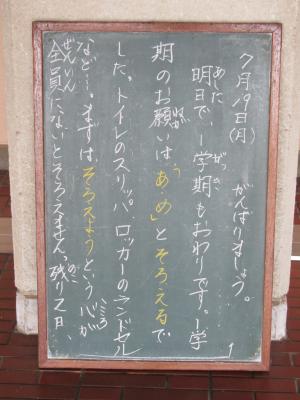 7月19日(月) がんばりましょう。
明日で、1学期もおわりです。1学
期のお願いは「あ・め」とそろえるで
した。トイレのスリッパ、ロッカーのランドセル
など…。まずは、そろえようという心が
全員にないとそろえません。残り2日、